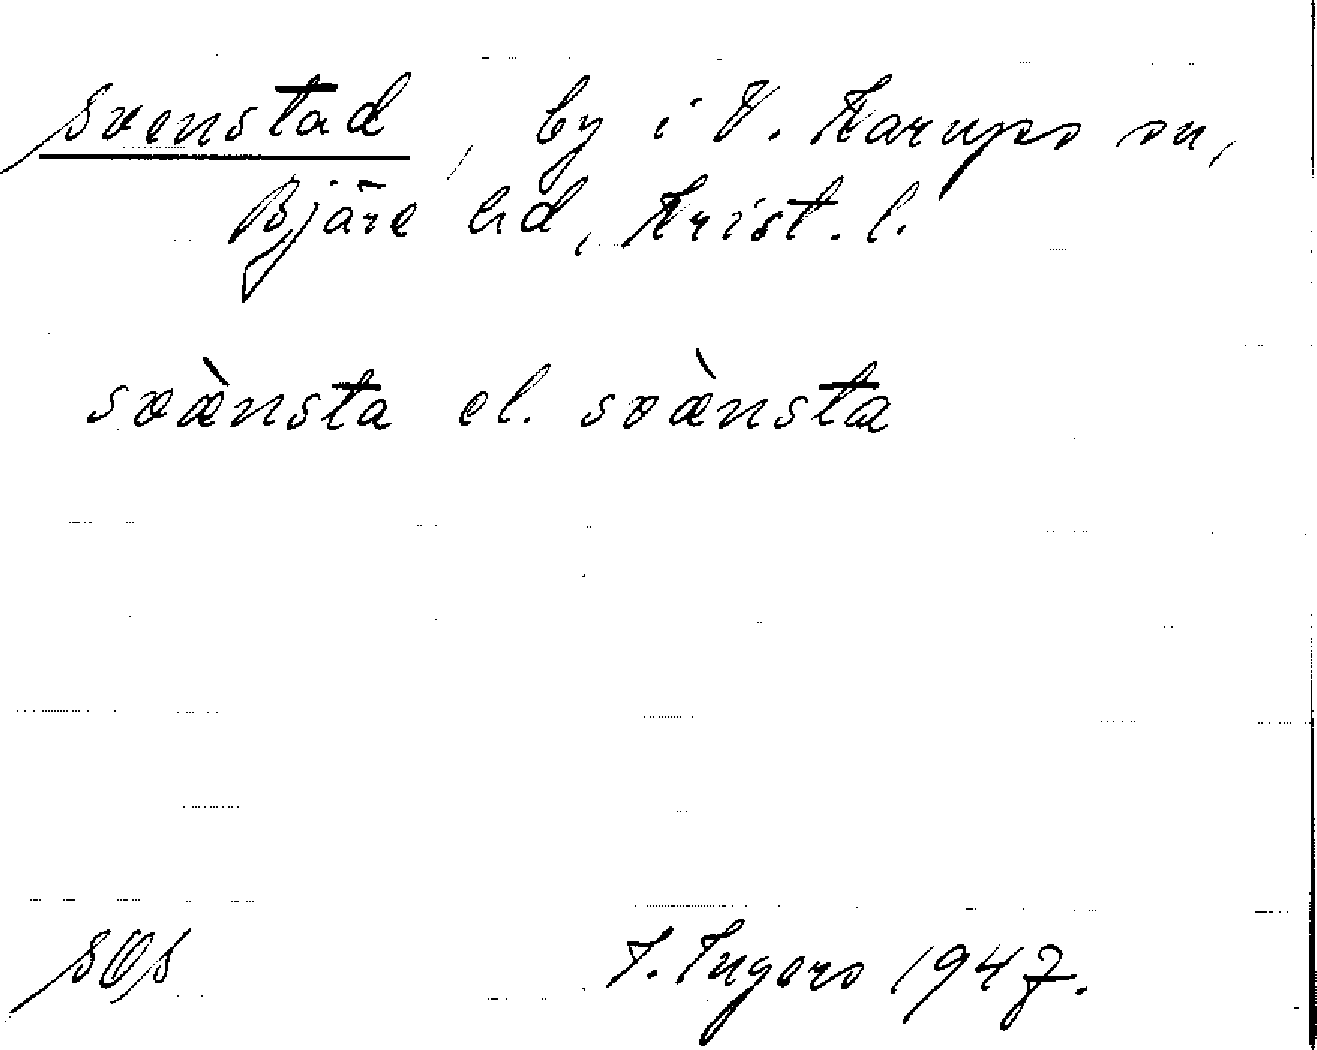 Svenstad, by i V. Karups sn,
Bjäre hd, Krist. l.
svæ̀nsta el. svæ̀nsta
SOS I. Ingers 1947.